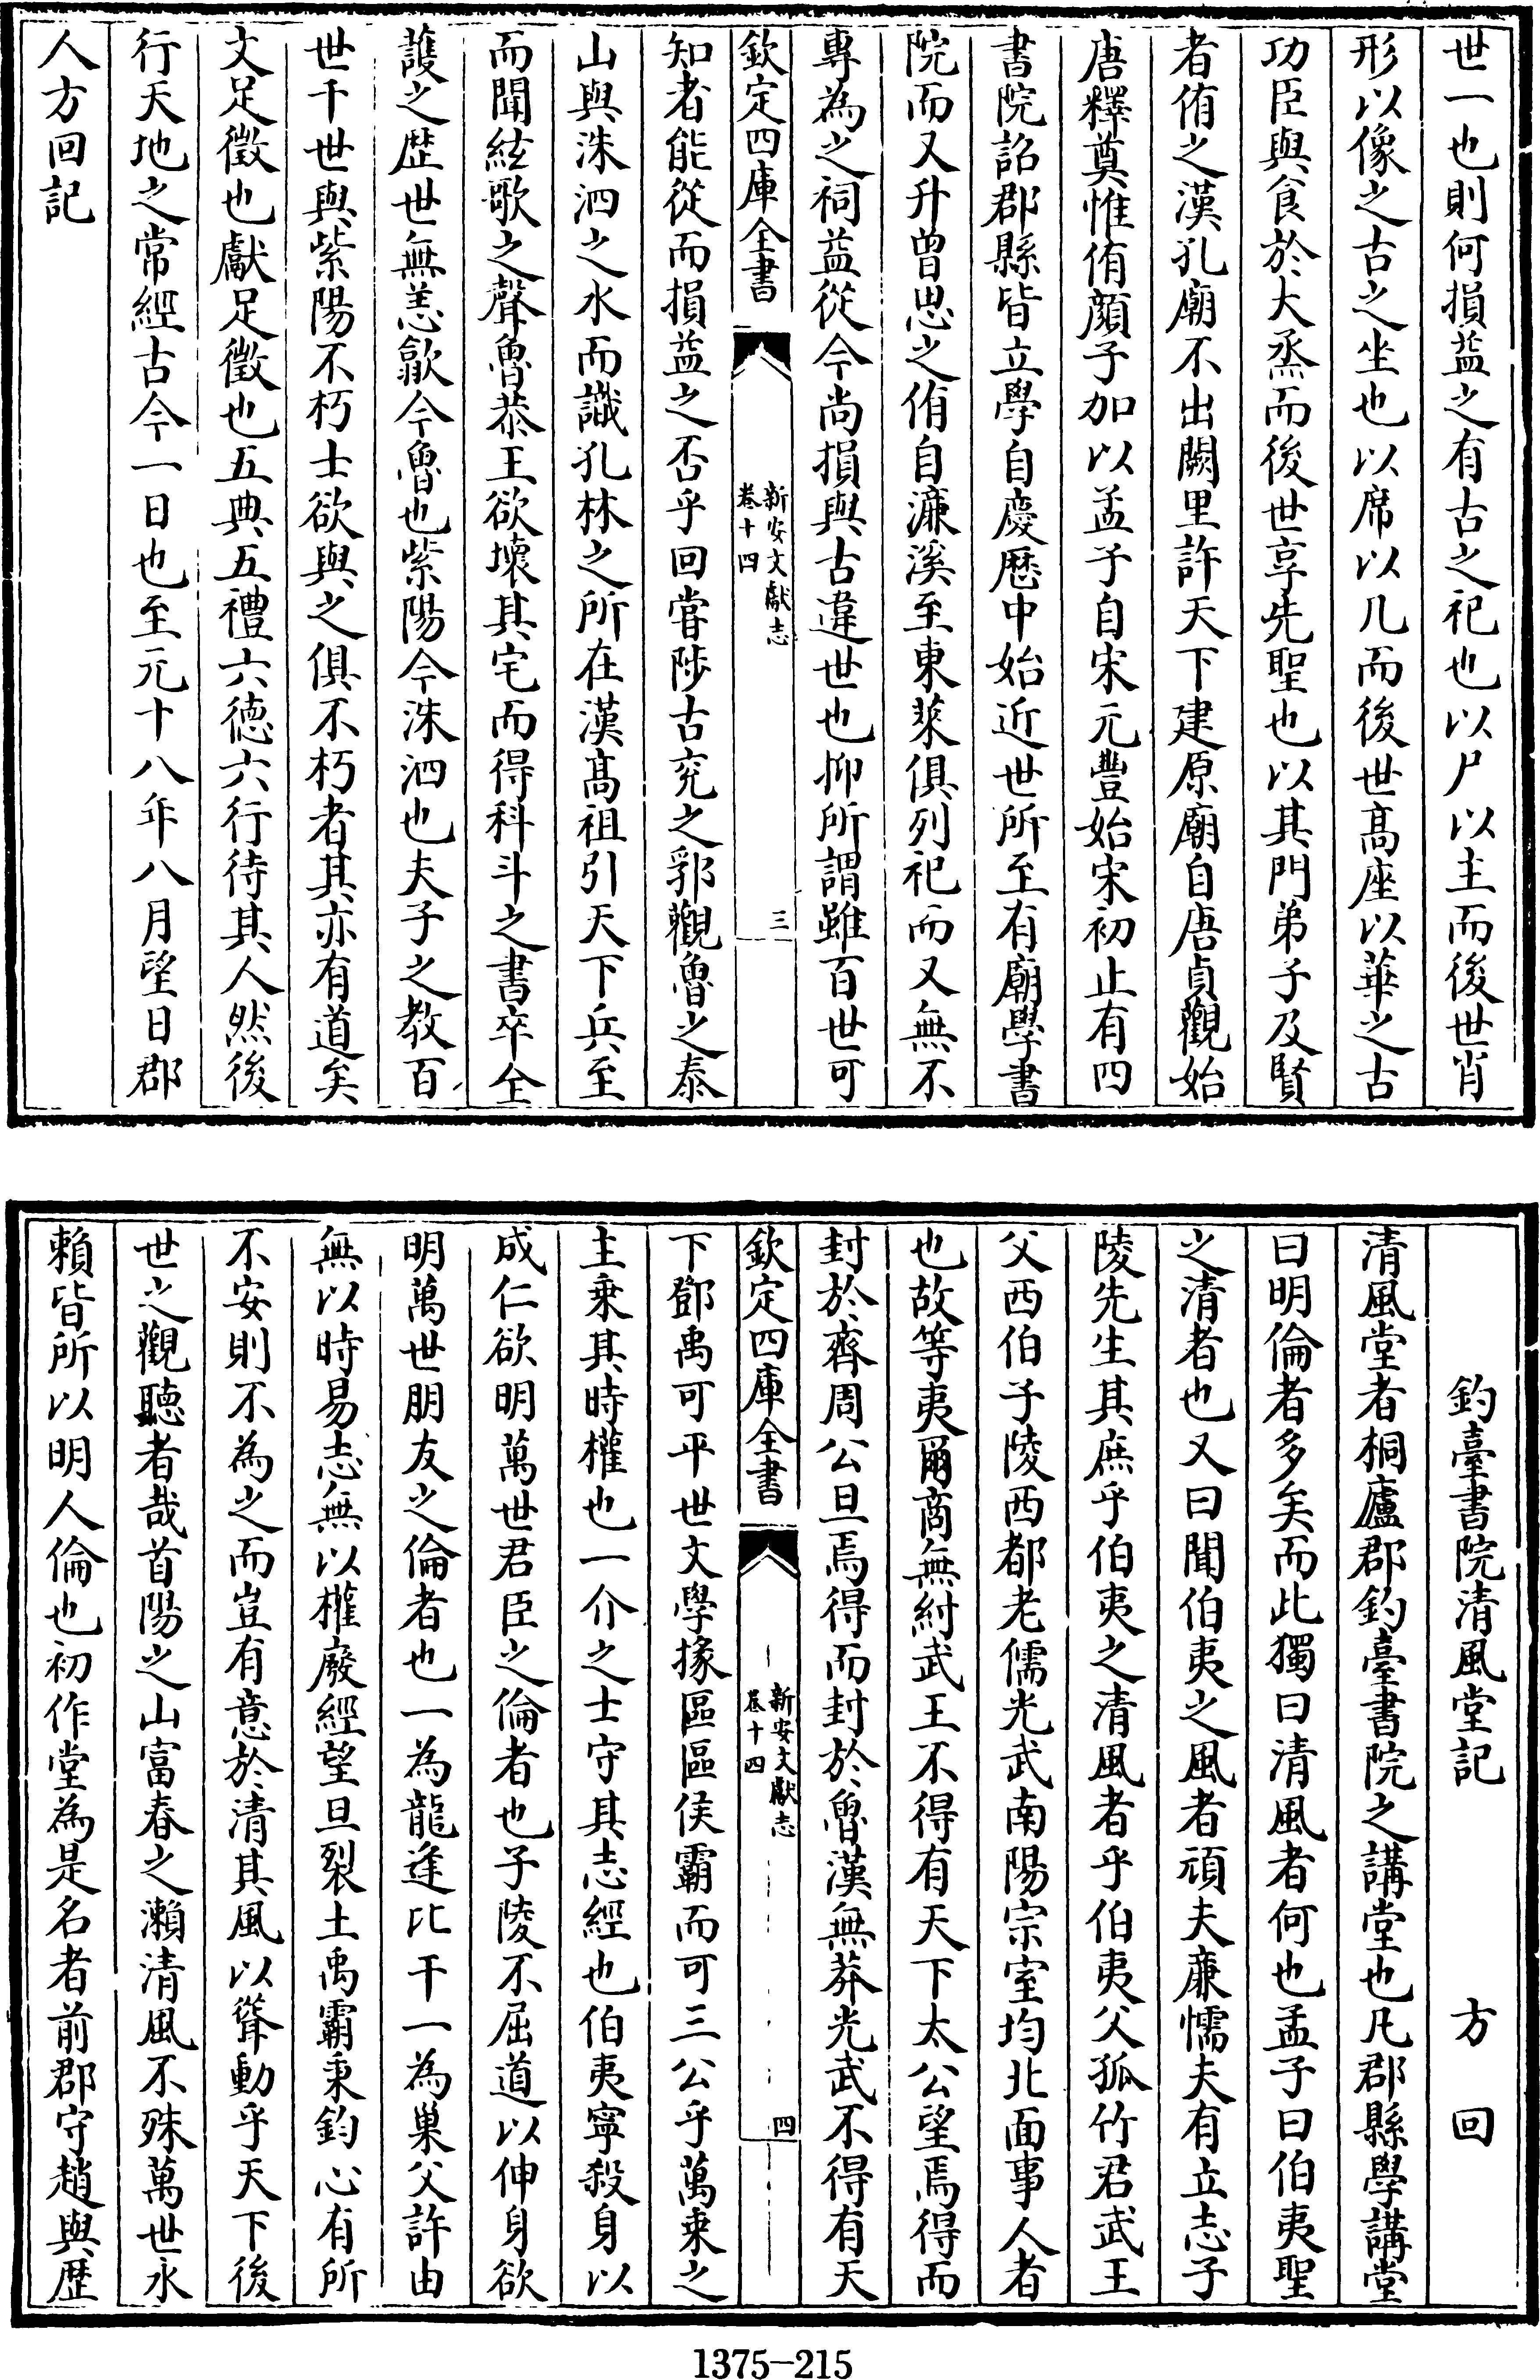 世一也則何損益之有古之祀也以尸以主而後世肖
形以像之古之坐也以席以几而後世髙座以華之古
功臣與食於大烝而後世享先聖也以其門弟子及賢
者侑之漢孔廟不出闕里許天下建原廟自唐貞觀始
唐釋奠惟侑顔子加以孟子自宋元豐始宋初止有四
書院詔郡縣皆立學自慶歴中始近世所至有廟學書
院而又升曾思之侑自濂溪至東萊俱列祀而又無不
專為之祠益從今尚損與古違世也抑所謂雖百世可
欽定四庫全書
新安文獻志
卷十四
三
知者能從而損益之否乎回嘗陟古兖之郛觀魯之泰
山與洙泗之水而識孔林之所在漢髙祖引天下兵至
而聞絃歌之聲魯恭王欲壊其宅而得科斗之書卒全
䕶之歴世無恙歙今魯也紫陽今洙泗也夫子之教百
世千世與紫陽不朽士欲與之俱不朽者其亦有道矣
文足徵也獻足徵也五典五禮六德六行待其人然後
行天地之常經古今一日也至元十八年八月望日郡
人方回記
釣臺書院清風堂記
方回
清風堂者桐廬郡釣臺書院之講堂也凡郡縣學講堂
曰明倫者多矣而此獨曰清風者何也孟子曰伯夷聖
之清者也又曰聞伯夷之風者頑夫廉懦夫有立志子
陵先生其庶乎伯夷之清風者乎伯夷父孤竹君武王
父西伯子陵西都老儒光武南陽宗室均北面事人者
也故等夷爾商無紂武王不得有天下太公望焉得而
封於齊周公旦焉得而封於魯漢無莽光武不得有天
欽定四庫全書
新安文獻志
卷十四
四
下鄧禹可平世文學掾區區侯霸而可三公乎萬乗之
主乗其時權也一介之士守其志經也伯夷寧殺身以
成仁欲明萬世君臣之倫者也子陵不屈道以伸身欲
明萬世朋友之倫者也一為龍逢比干一為巢父許由
無以時易志無以權廢經望旦裂土禹霸秉鈞心有所
不安則不為之而豈有意於清其風以聳動乎天下後
世之觀聽者哉首陽之山富春之瀨清風不殊萬世永
賴皆所以明人倫也初作堂為是名者前郡守趙與歴
1375-215